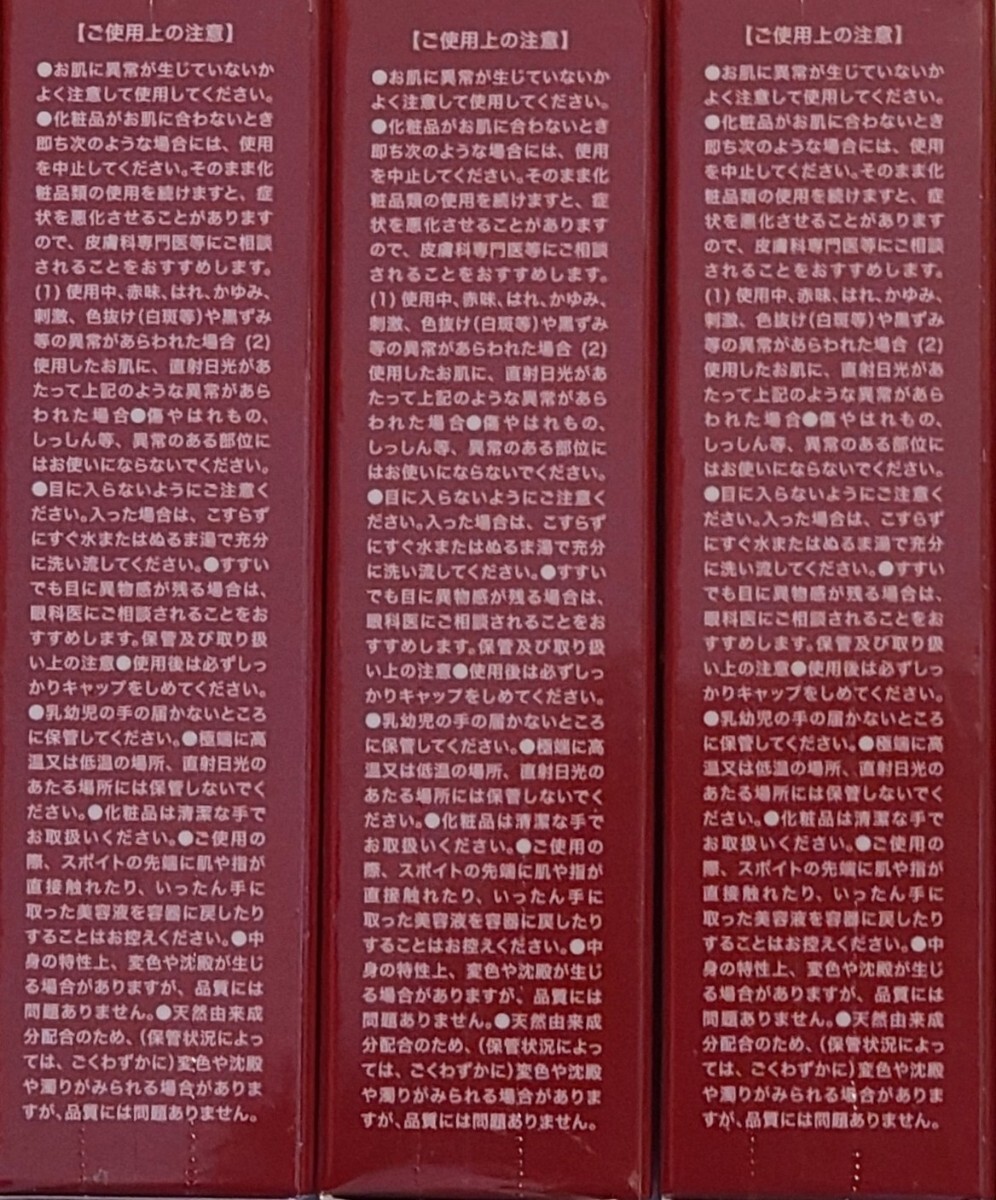 【ご使用上の注意】
●お肌に異常が生じていないか
よく注意して使用してください。
●化粧品がお肌に合わないとき
即ち次のような場合には、使用
を中止してください。そのまま化
粧品類の使用を続けますと、症
状を悪化させることがあります
ので、皮膚科専門医等にご相談
されることをおすすめします。
(1) 使用中、赤味、はれ、かゆみ、
刺激、色抜け(白斑等)や黒ずみ
等の異常があらわれた場合 (2)
使用したお肌に、直射日光があ
たって上記のような異常があら
われた場合●傷やはれもの、
しっしん等、異常のある部位に
はお使いにならないでください。
●目に入らないようにご注意く
ださい。入った場合は、こすらず
にすぐ水またはぬるま湯で充分
に洗い流してください。●すすい
でも目に異物感が残る場合は、
眼科医にご相談されることをお
すすめします。保管及び取り扱
い上の注意●使用後は必ずしっ
かりキャップをしめてください。
●乳幼児の手の届かないところ
に保管してください。●極端に高
温又は低温の場所、直射日光の
あたる場所には保管しないでく
ださい。●化粧品は清潔な手で
お取扱いください。●ご使用の
際、スポイトの先端に肌や指が
直接触れたり、いったん手に
取った美容液を容器に戻したり
することはお控えください。●中
身の特性上、変色や沈殿が生じ
る場合がありますが、品質には
問題ありません。●天然由来成
分配合のため、(保管状況によっ
ては、ごくわずかに)変色や沈殿
や濁りがみられる場合がありま
すが、品質には問題ありません。
【ご使用上の注意】
●お肌に異常が生じていないか
よく注意して使用してください。
●化粧品がお肌に合わないとき
即ち次のような場合には、使用
を中止してください。そのまま化
粧品類の使用を続けますと、症
状を悪化させることがあります
ので、皮膚科専門医等にご相談
されることをおすすめします。
(1) 使用中、赤味、はれ、かゆみ、
刺激、色抜け(白斑等)や黒ずみ
等の異常があらわれた場合 (2)
使用したお肌に、直射日光があ
たって上記のような異常があら
われた場合●傷やはれもの、
しっしん等、異常のある部位に
はお使いにならないでください。
●目に入らないようにご注意く
ださい。入った場合は、こすらず
にすぐ水またはぬるま湯で充分
に洗い流してください。●すすい
でも目に異物感が残る場合は、
眼科医にご相談されることをお
すすめします。保管及び取り扱
い上の注意●使用後は必ずしっ
かりキャップをしめてください。
●乳幼児の手の届かないところ
に保管してください。●極端に高
温又は低温の場所、直射日光の
あたる場所には保管しないでく
ださい。●化粧品は清潔な手で
お取扱いください。●ご使用の
際、スポイトの先端に肌や指が
直接触れたり、いったん手に
取った美容液を容器に戻したり
することはお控えください。●中
身の特性上、変色や沈殿が生じ
る場合がありますが、品質には
問題ありません。●天然由来成
分配合のため、(保管状況によっ
ては、ごくわずかに)変色や沈殿
や濁りがみられる場合がありま
すが、品質には問題ありません。
【ご使用上の注意】
●お肌に異常が生じていないか
よく注意して使用してください。
●化粧品がお肌に合わないとき
即ち次のような場合には、使用
を中止してください。そのまま化
粧品類の使用を続けますと、症
状を悪化させることがあります
ので、皮膚科専門医等にご相談
されることをおすすめします。
(1) 使用中、赤味、はれ、かゆみ、
刺激、色抜け(白斑等)や黒ずみ
等の異常があらわれた場合 (2)
使用したお肌に、直射日光があ
たって上記のような異常があら
われた場合●傷やはれもの、
しっしん等、異常のある部位に
はお使いにならないでください。
●目に入らないようにご注意く
ださい。入った場合は、こすらず
にすぐ水またはぬるま湯で充分
に洗い流してください。●すすい
でも目に異物感が残る場合は、
眼科医にご相談されることをお
すすめします。保管及び取り扱
い上の注意●使用後は必ずしっ
かりキャップをしめてください。
●乳幼児の手の届かないところ
に保管してください。●極端に高
温又は低温の場所、直射日光の
あたる場所には保管しないでく
ださい。●化粧品は清潔な手で
お取扱いください。●ご使用の
際、スポイトの先端に肌や指が
直接触れたり、いったん手に
取った美容液を容器に戻したり
することはお控えください。●中
身の特性上、変色や沈殿が生じ
る場合がありますが、品質には
問題ありません。●天然由来成
分配合のため、(保管状況によっ
ては、ごくわずかに)変色や沈殿
や濁りがみられる場合がありま
すが、品質には問題ありません。